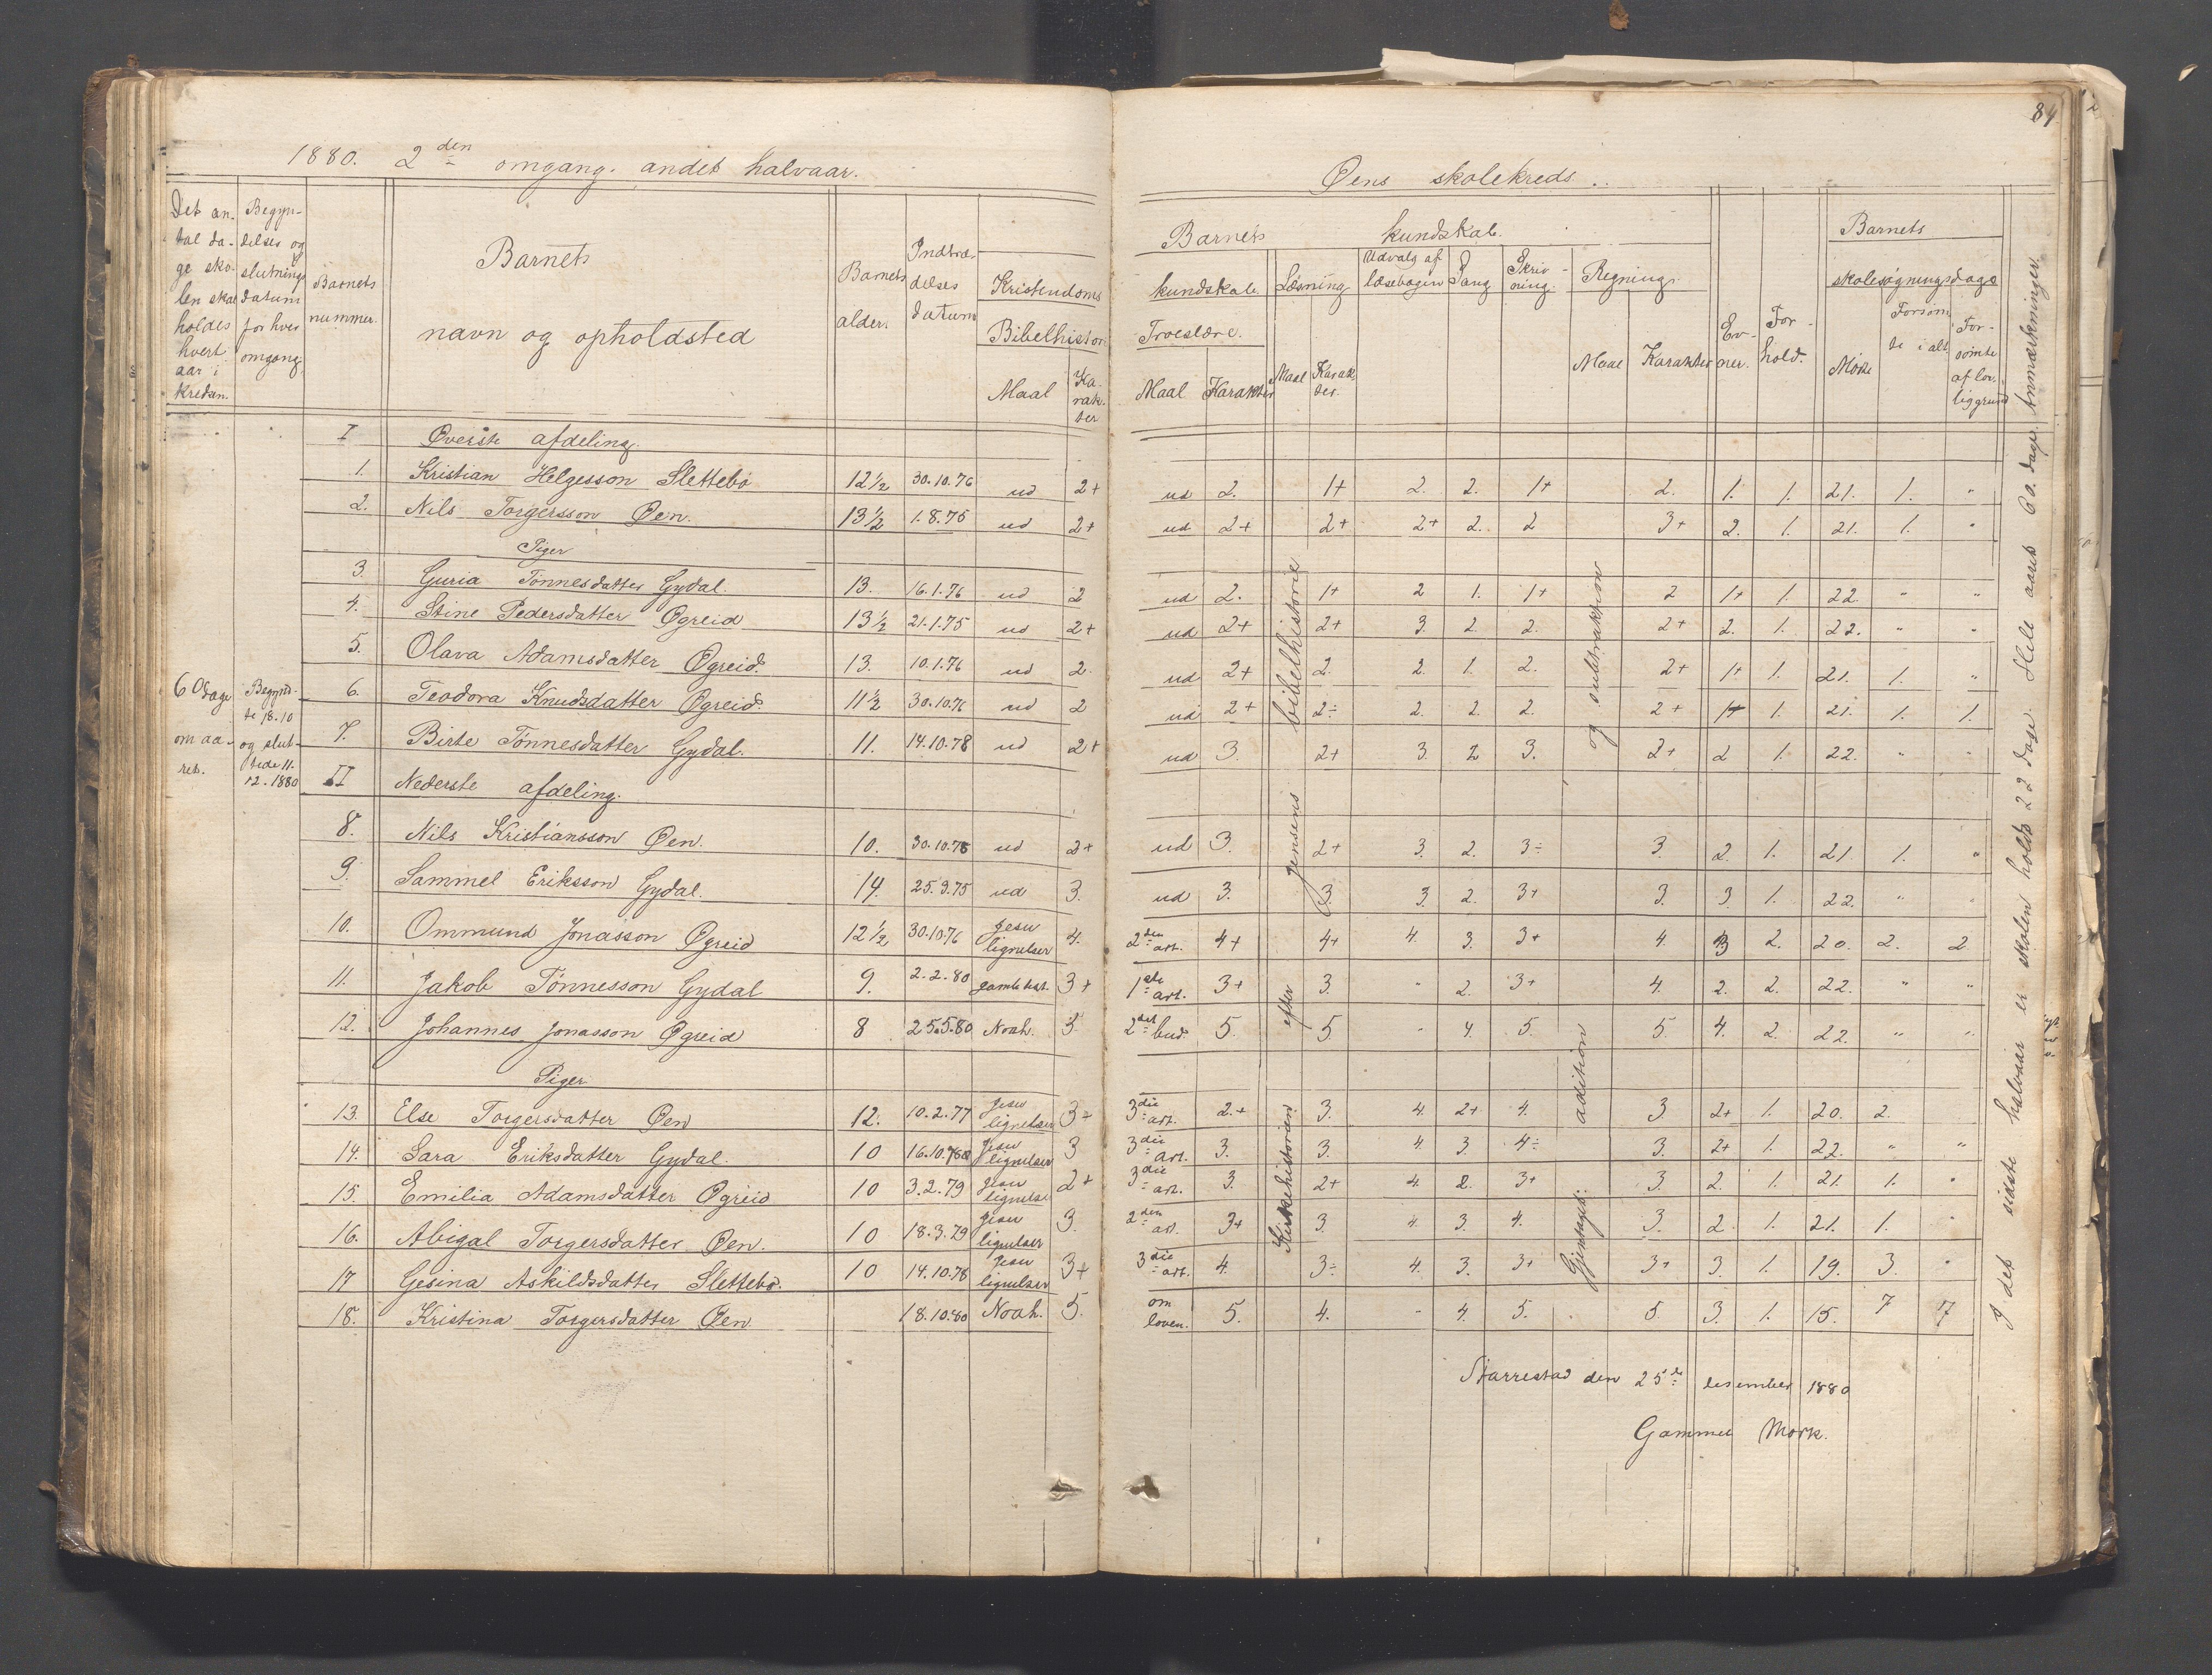 84
1880. 2den omgang. andet halvaar.
Øens skolekreds.
Det an-
tal da-
ge sko-
len skal
holdes
hvert
aar i
kredsen.
Begyn-
delses og
slutnings
datum
for hver
omgang.
Barnets
nummer.
Barnets
navn og opholdsted
Barnets
alder.
Indtræ-
delses
datum
Kristendoms
Bibelhistor.
Maal
Ka-
rak-
ter
Barnets kundskab.
kundskab.
Troeslære.
Maal Karakter
Læsning
Maal Karak-
ter.
Udvalg af
læsebogen
Sang
Skriv-
ning.
Regning.
Maal Karakter
Ev-
ner.
For-
hold.
Barnets
skolesøgningsdage
Møte
Forsøm-
te i alt
For-
sømte
af lov-
lig grund
Anmærkninger.
60 dage
om aa-
ret.
Begynd-
te 18-10
og slut-
tede 11.
12. 1880
I Øverste afdeling.
1. Kristian Helgesson Slettebø 12 1/2 30.10.76 ud 2+ ud 2. 1+ 2. 2. 1+ 2. 1. 1. 21. 1. "
2. Nils Torgersson Øen. 13 1/2 1.8.75 ud 2+ ud 2+ 2+ 2+ 2. 2 3+ 2. 1. 21. 1. "
Piger
3. Guria Tønnesdatter Gydal. 13. 16.1.76 ud 2 ud 2. 1+ 2 1. 1+ 2 1+ 1. 22. " "
4. Stine Pedersdatter Øgreid 13 1/2 21.1.75 ud 2+ ud 2+ 2+ 3. 2. 2. 2+ 2. 1. 22. " "
5. Olava Adamsdatter Øgreid. 13. 10.1.76 ud 2. ud 2+ 2. 2. 1. 2. 2+ 1+ 1. 21. 1. "
6. Teodora Knudsdatter Øgreid. 11 1/2 30.10.76 ud 2 ud 2+ 2÷ 2. 2. 2. 2+ 1+ 1. 21. 1. 1.
7. Birte Tønnesdatter Gydal. 11. 14.10.78 ud 2+ ud 3. 2+ 3. 2 3. 2+ 2 1. 22. " "
II Nederste afdeling.
8. Nils Kristiansson Øen. 10. 30.10.76 ud 2+ ud 3. 2+ 3. 2. 3÷ 3. 2. 1. 21. 1. "
9. Sammel Eriksson Gydal. 14. 25.9.75 ud 3. ud 3. 3. 3. 2. 3+ 3. 3. 1. 22. " "
10. Ommund Jonasson Øgreid 12 1/2 30.10.76 Jesu lignelser 4. 2den art. 4+ 4+ 4. 3. 3+ 4. 3 2. 20. 2. 2
11. Jakob Tønnesson Gydal 9. 2.2.80 gamle test. 3+ 1ste art. 3+ 3. " 2. 3+ 4. 2. 2. 22. " "
12. Johannes Jonasson Øgreid 8 25.5.80 Noah. 5. 2det bud. 5. 5. " 4. 5. 5 4. 2. 22. " "
Piger
13. Else Torgersdatter Øen 12. 10.2.77 Jesu lignelser 3+ 3die art. 2+ 3. 4. 2+ 4. 3 2+ 1. 20. 2.
14. Sara Eriksdatter Gydal. 10 16.10.78 Jesu lignelser 3 3die art. 3. 3. 4. 3. 4÷ 3. 2+ 1. 22. " "
15. Emilia Adamsdatter Øgreid 10 3.2.79 Jesu lignelse 2+ 3die art. 3. 2+ 4. 2. 3+ 3. 2. 1. 21. 1. "
16. Abigal Torgersdatter Øen. 10 18.3.79 Jesu lignelser 3. 2den art. 3+ 3. 4. 3. 4. 3. 2. 1. 21. 1. "
17 Gesina Askildsdatter Slettebø. 10 14.10.78 Jesu lignelser 3+ 3die art. 4. 3÷ 4. 3. 3+ 3+ 3. 1. 19. 3. "
18. Kristina Torgersdatter Øen 18.10.80 Noah. 5. om loven. 5. 4. - 4. 5. 5 3. 1. 15. 7 7
Kirkehistorien efter Jensens bibelhistorie
Gjentaget: adition og subtraktion
I det sidste halvaar er skolen holdt 22 dage. Hele aaret 60. dage.
Starrestad den 25de desember 1880
Gammel Mork.